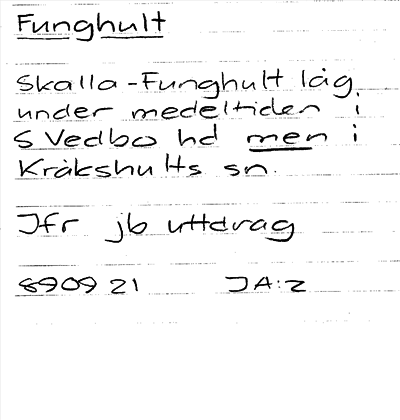 Funghult
Skalla-Funghult låg
under medeltiden i
S Vedbo hd men i
Kråkshults sn.
Jfr jb utdrag
890921 JA:2